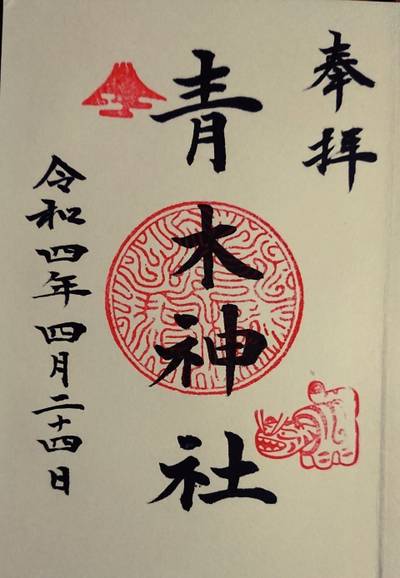 奉拝
青木神社
令和四年四月二十四日